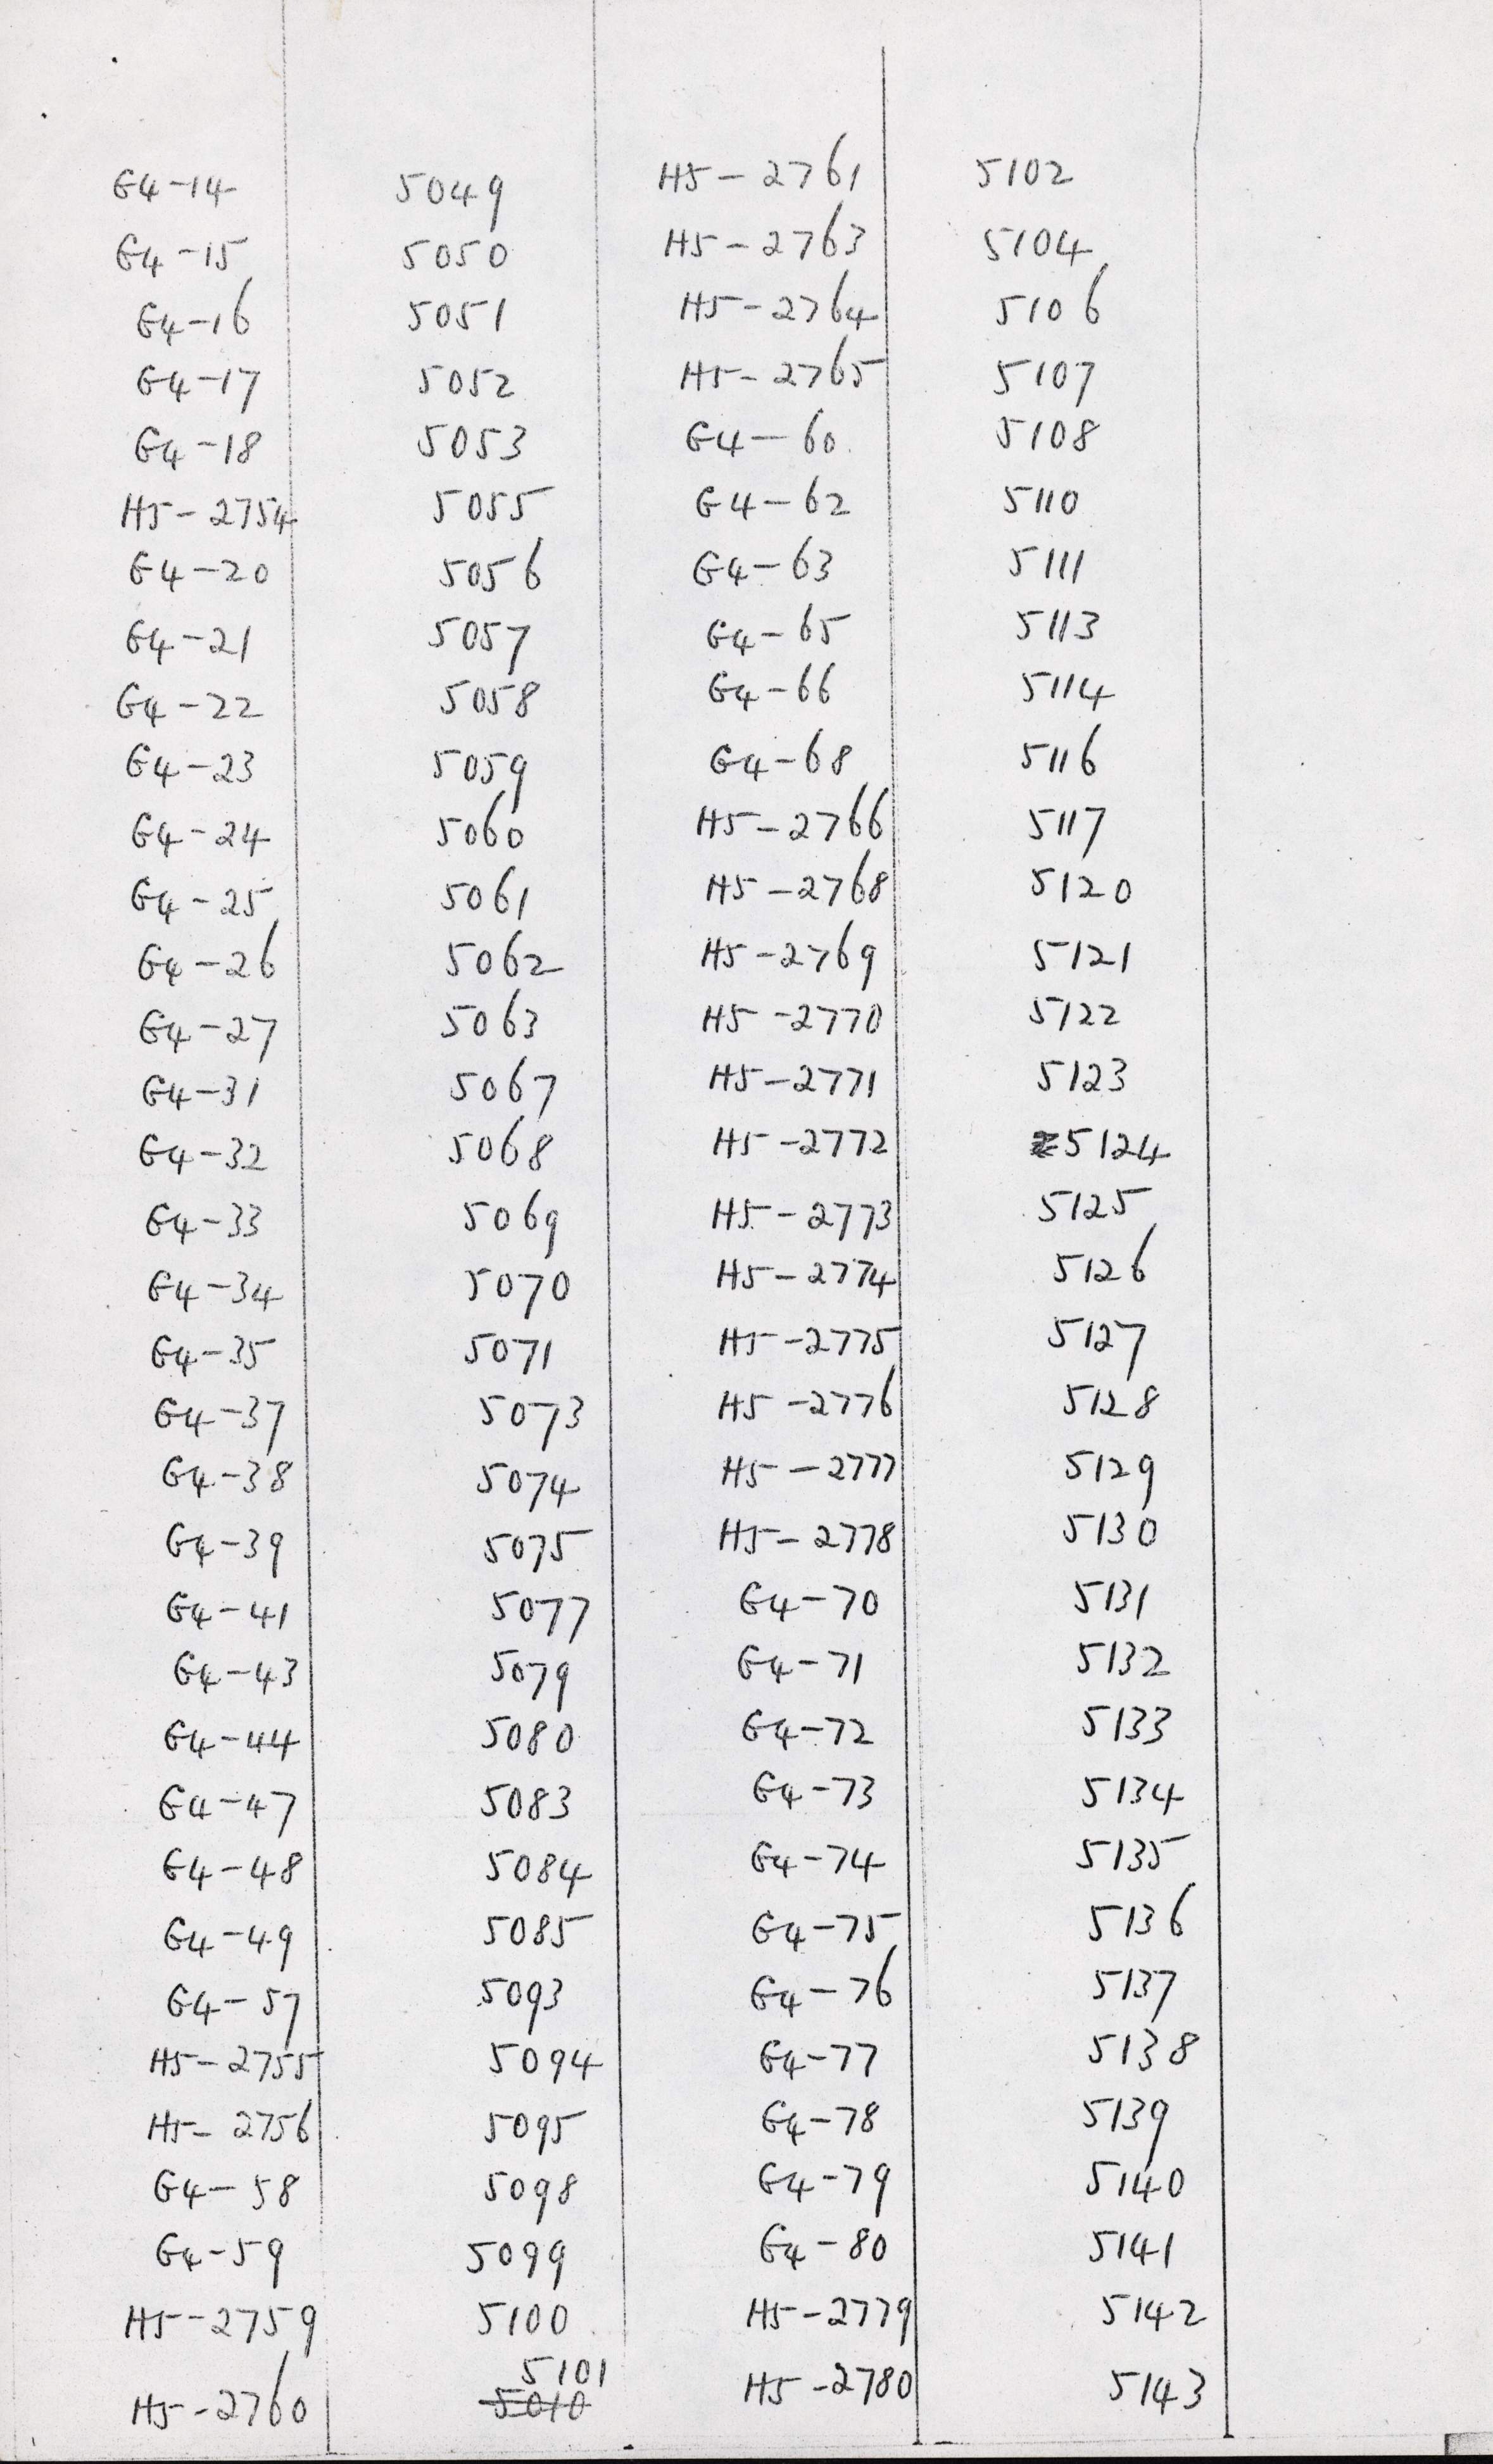 G4-14 5049 H5-2761 5102
G4-15 5050 H5-2763 5104
G4-16 5051 H5-2764 5106
G4-17 5052 H5-2765 5107
G4-18 5053 G4-60 5108
H5-2754 5055 G4-62 5110
G4-20 5056 G4-63 5111
G4-21 5057 G4-65 5113
G4-22 5058 G4-66 5114
G4-23 5059 G4-68 5116
G4-24 5060 H5-2766 5117
G4-25 5061 H5-2768 5120
G4-26 5062 H5-2769 5121
G4-27 5063 H5-2770 5122
G4-31 5067 H5-2771 5123
G4-32 5068 H5-2772 5124
G4-33 5069 H5-2773 5125
G4-34 5070 H5-2774 5126
G4-35 5071 H5-2775 5127
G4-37 5073 H5-2776 5128
G4-38 5074 H5-2777 5129
G4-39 5075 H5-2778 5130
G4-41 5077 G4-70 5131
G4-43 5079 G4-71 5132
G4-44 5080 G4-72 5133
G4-47 5083 G4-73 5134
G4-48 5084 G4-74 5135
G4-49 5085 G4-75 5136
G4-57 5093 G4-76 5137
H5-2755 5094 G4-77 5138
H5-2756 5095 G4-78 5139
G4-58 5098 G4-79 5140
G4-59 5099 G4-80 5141
H5-2759 5100 H5-2779 5142
5101
H5-2760 5010 H5-2780 5143